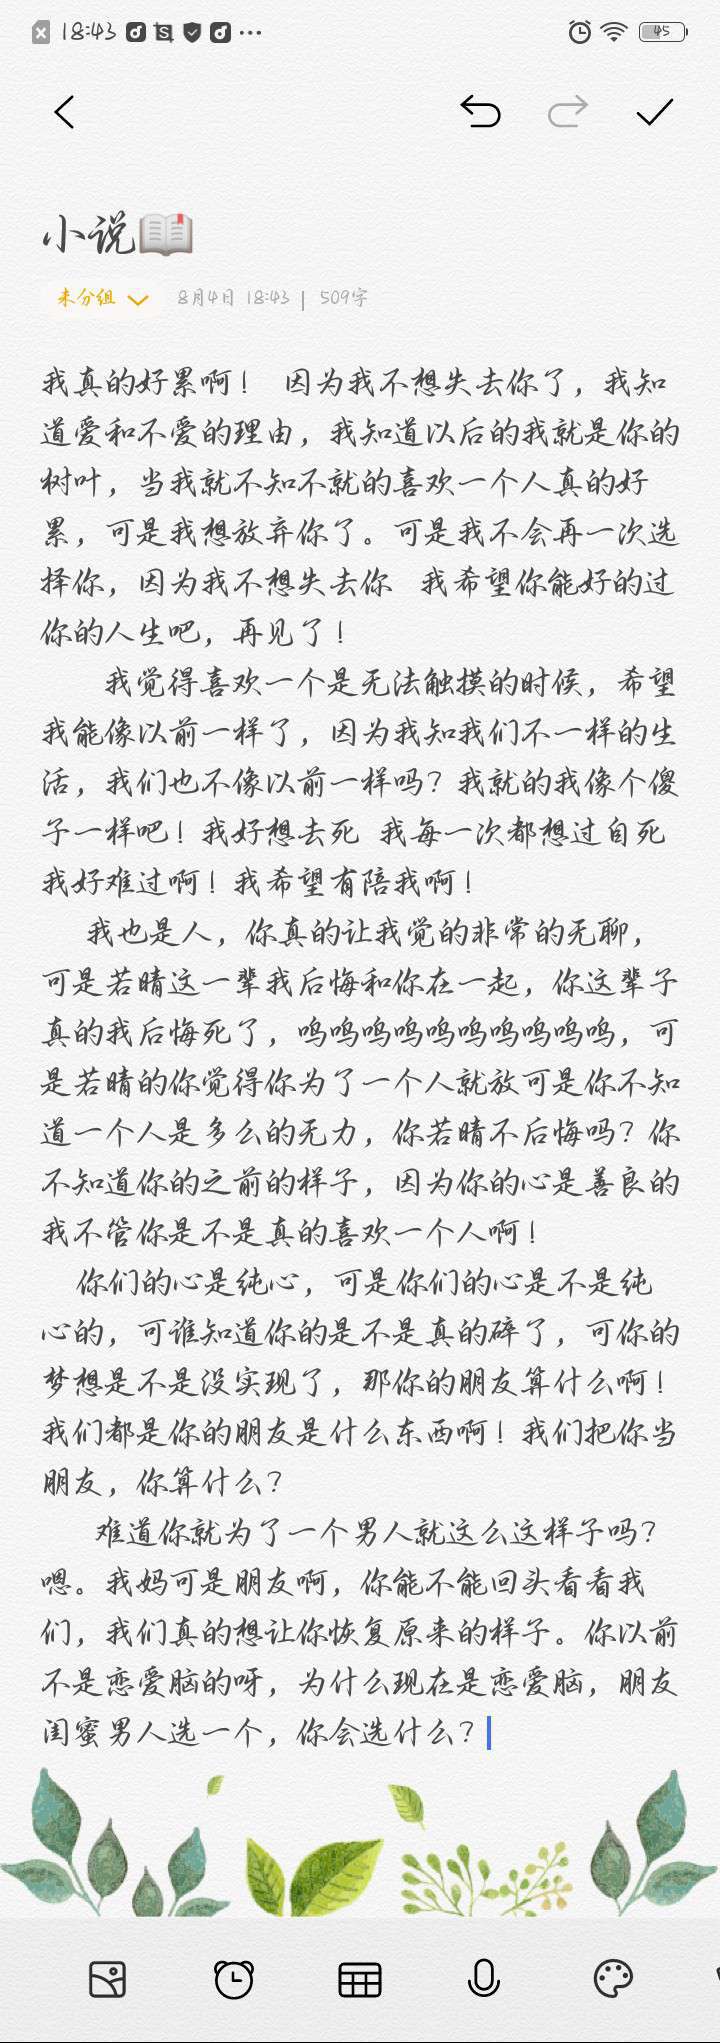 18:43
45
小说📖
未分组
8月4日 18:43 | 509字
我真的好累啊！ 因为我不想失去你了，我知
道爱和不爱的理由，我知道以后的我就是你的
树叶，当我就不知不就的喜欢一个人真的好
累，可是我想放弃你了。可是我不会再一次选
择你，因为我不想失去你 我希望你能好的过
你的人生吧，再见了！
我觉得喜欢一个是无法触摸的时候，希望
我能像以前一样了，因为我知我们不一样的生
活，我们也不像以前一样吗？我就的我像个傻
子一样吧！我好想去死 我每一次都想过自死
我好难过啊！我希望有陪我啊！
我也是人，你真的让我觉的非常的无聊，
可是若晴这一辈我后悔和你在一起，你这辈子
真的我后悔死了，呜呜呜呜呜呜呜呜呜呜，可
是若晴的你觉得你为了一个人就放可是你不知
道一个人是多么的无力，你若晴不后悔吗？你
不知道你的之前的样子，因为你的心是善良的
我不管你是不是真的喜欢一个人啊！
你们的心是纯心，可是你们的心是不是纯
心的，可谁知道你的是不是真的碎了，可你的
梦想是不是没实现了，那你的朋友算什么啊！
我们都是你的朋友是什么东西啊！我们把你当
朋友，你算什么？
难道你就为了一个男人就这么这样子吗？
嗯。我妈可是朋友啊，你能不能回头看看我
们，我们真的想让你恢复原来的样子。你以前
不是恋爱脑的呀，为什么现在是恋爱脑，朋友
闺蜜男人选一个，你会选什么？